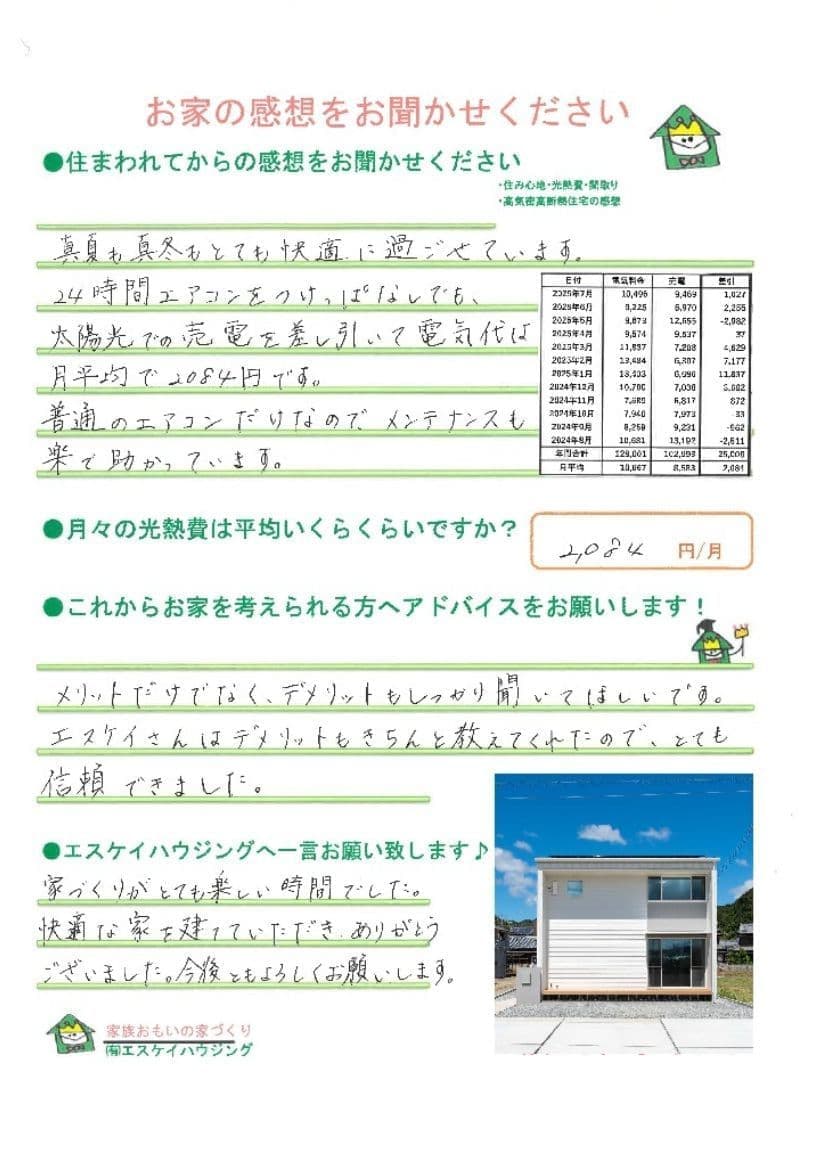 お家の感想をお聞かせください
●住まわれてからの感想をお聞かせください
・住み心地・光熱費・間取り
・高気密高断熱住宅の感想
真夏も真冬もとても快適に過ごせています。
24時間エアコンをつけっぱなしでも、
太陽光での売電を差し引いて電気代は
月平均で2084円です。
普通のエアコンだけなので、メンテナンスも
楽で助かっています。
日付 電気料金 売電 差引
2025年7月 10,496 9,469 1,027
2025年6月 8,225 5,970 2,255
2025年5月 9,673 12,655 -2,982
2025年4月 9,574 9,537 37
2025年3月 11,837 7,208 4,629
2025年2月 13,484 6,307 7,177
2025年1月 18,433 6,596 11,837
2024年12月
2024年11月 7,689 6,817 872
2024年10月 7,940 7,973 -33
2024年9月 8,259 9,221 -962
2024年8月 10,681 13,192 -2,511
年間合計 128,001 102,993 25,008
月平均 10,667 8,583 2,084
●月々の光熱費は平均いくらくらいですか？
2,084 円/月
●これからお家を考えられる方へアドバイスをお願いします！
メリットだけでなく、デメリットもしっかり聞いてほしいです。
エスケイさんはデメリットもきちんと教えてくれたので、とても
信頼できました。
●エスケイハウジングへ一言お願い致します♪
家づくりがとても楽しい時間でした。
快適な家を建てていただき、ありがとう
ございました。今後ともよろしくお願いします。
家族おもいの家づくり
㈲エスケイハウジング